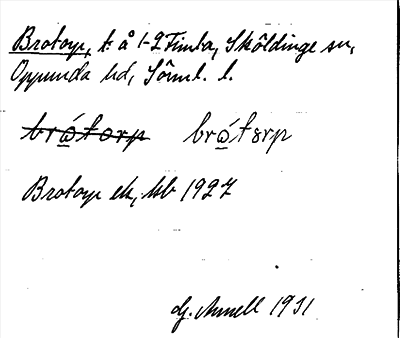 Brotorp, t. å 1-2 Fimta, Sköldinge sn,
Oppunda hd, Sörml. l.
brǫ́torp brǫ́tørp
Brotorp ek, kb 1927
G. Annell 1931